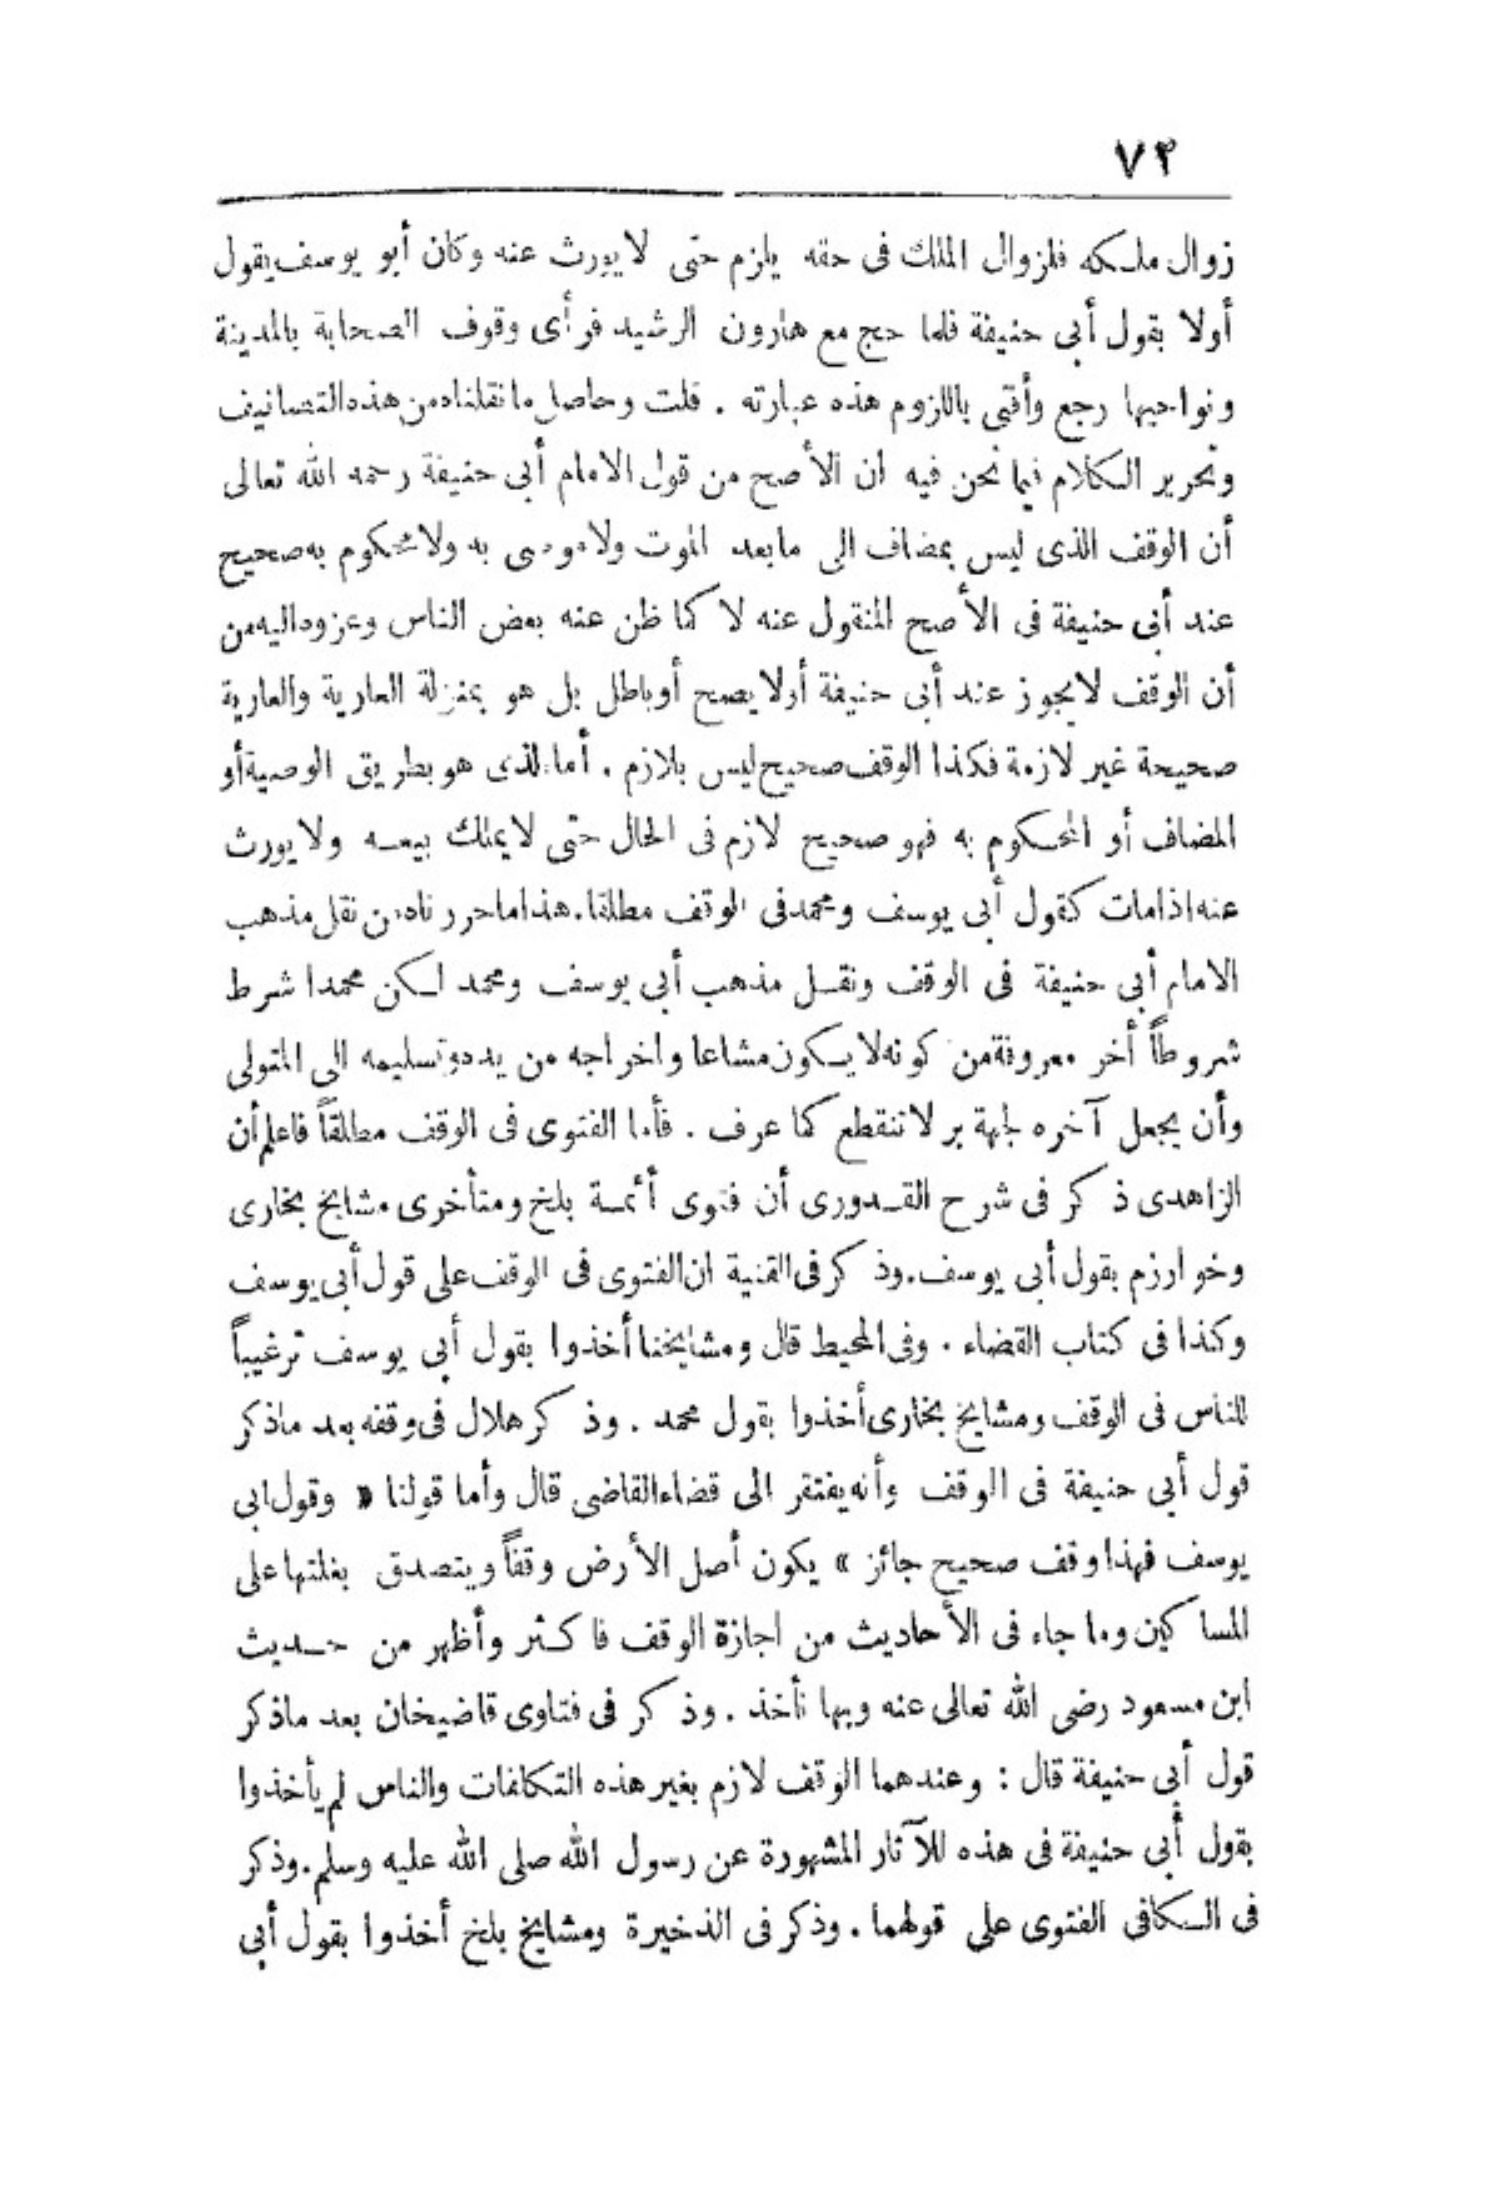 ٧٣
زوال ملكه فلزوال الملك فى حقه يلزم حتى لا يورث عنه وكان أبو يوسف يقول
أولا بقول أبى حنيفة فلما حج مع هارون الرشيد فرأى وقوف الصحابة بالمدينة
ونواحيها رجع وأفتى باللزوم هذه عبارته . قلت وحاصل ما نقلناه من هذه التصانيف
وتحرير الكلام فيما نحن فيه ان الأصح من قول الامام أبى حنيفة رحمه الله تعالى
أن الوقف الذى ليس بمضاف الى ما بعد الموت ولا موصى به ولا محكوم به صحيح
عند أبى حنيفة فى الأصح المنقول عنه لا كما ظن عنه بعض الناس وعزوه اليه من
أن الوقف لا يجوز عند أبى حنيفة أولا يصح أو باطل بل هو بمنزلة العارية والعارية
صحيحة غير لازمة فكذا الوقف صحيح ليس بلازم . أما الذى هو بطريق الوصية أو
المضاف أو المحكوم به فهو صحيح لازم فى الحال حتى لا يملك بيعه ولا يورث
عنه اذا مات كقول أبى يوسف ومحمد فى الوقف مطلقا . هذا ما حررناه من نقل مذهب
الامام أبى حنيفة فى الوقف ونقل مذهب أبى يوسف ومحمد لكن محمدا شرط
شروطاً أخر معروفة من كونه لا يكون مشاعا واخراجه من يده وتسليمه الى المتولى
وأن يجعل آخره لجهة بر لا تنقطع كما عرف . فأما الفتوى فى الوقف مطلقاً فاعلم أن
الزاهدى ذكر فى شرح القدورى أن فتوى أئمة بلخ ومتأخرى مشايخ بخارى
وخوارزم بقول أبى يوسف . وذكر فى القنية ان الفتوى فى الوقف على قول أبى يوسف
وكذا فى كتاب القضاء . وفى المحيط قال ومشايخنا أخذوا بقول أبى يوسف ترغيباً
للناس فى الوقف ومشايخ بخارى أخذوا بقول محمد . وذكر هلال فى وقفه بعد ما ذكر
قول أبى حنيفة فى الوقف وأنه يفتقر الى قضاء القاضى قال وأما قولنا « وقول ابى
يوسف فهذا وقف صحيح جائز » يكون أصل الأرض وقفاً ويتصدق بغلتها على
المساكين وما جاء فى الأحاديث من اجازة الوقف فاكثر وأظهر من حديث
ابن مسعود رضى الله تعالى عنه وبها نأخذ . وذكر فى فتاوى قاضيخان بعد ما ذكر
قول أبى حنيفة قال : وعندهما الوقف لازم بغير هذه التكلفات والناس لم يأخذوا
بقول أبى حنيفة فى هذه للآثار المشهورة عن رسول الله صلى الله عليه وسلم . وذكر
فى الكافى الفتوى على قولهما . وذكر فى الذخيرة ومشايخ بلخ أخذوا بقول أبى